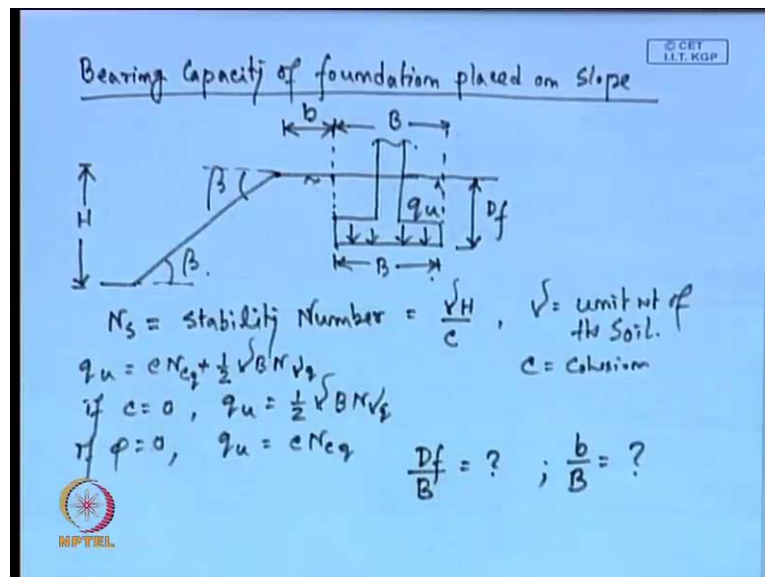 © CET
I.I.T. KGP
Bearing Capacity of foundation placed on slope
b B
β H β. qu Df
B
Ns = Stability Number = γH/c , γ = unit wt of the soil.
qu = cNcq + 1/2 γBNγq c = cohesion
if c=0, qu = 1/2 γBNγq
if φ=0, qu = cNcq Df/B = ? ; b/B = ?
NPTEL